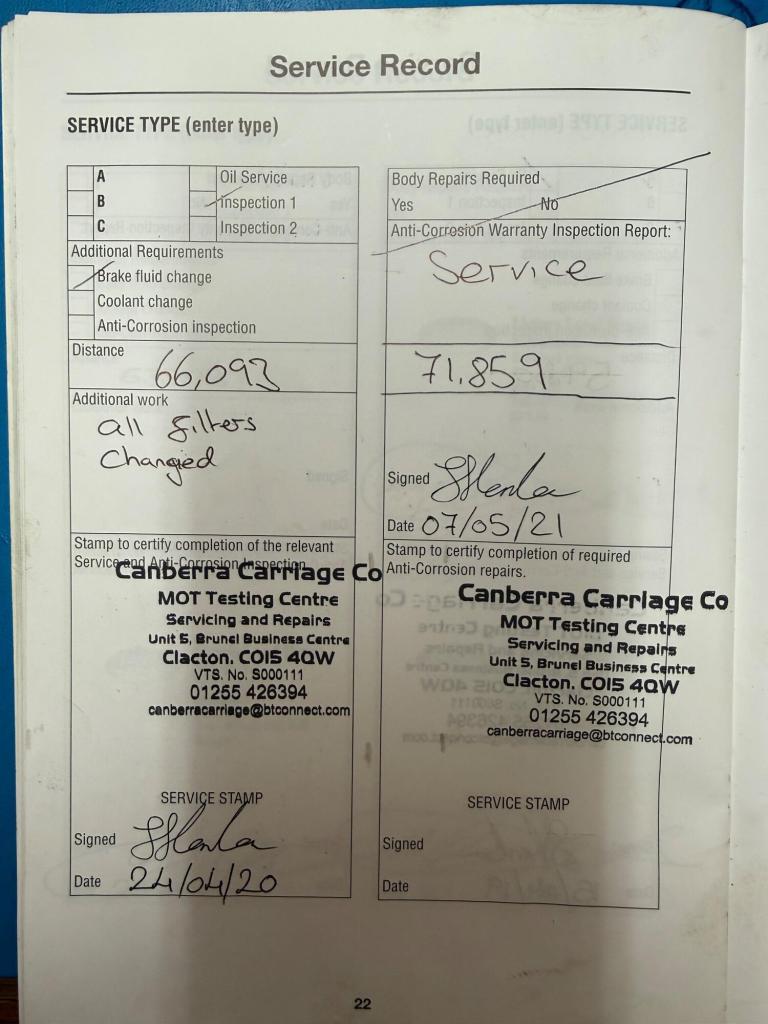 Service Record
SERVICE TYPE (enter type)
A
Oil Service
B
Inspection 1
C
Inspection 2
Additional Requirements
Brake fluid change
Coolant change
Anti-Corrosion inspection
Distance
66,093
Additional work
all filters
Changed
Stamp to certify completion of the relevant
Service and Anti-Corrosion Inspection
Canberra Carriage Co
MOT Testing Centre
Servicing and Repairs
Unit 5, Brunel Business Centre
Clacton. CO15 4QW
VTS. No. S000111
01255 426394
canberracarriage@btconnect.com
SERVICE STAMP
Signed
Date 24/04/20
Body Repairs Required
Yes No
Anti-Corrosion Warranty Inspection Report:
Service
71.859
Signed
Date 07/05/21
Stamp to certify completion of required
Anti-Corrosion repairs.
Canberra Carriage Co
MOT Testing Centre
Servicing and Repairs
Unit 5, Brunel Business Centre
Clacton. CO15 4QW
VTS. No. S000111
01255 426394
canberracarriage@btconnect.com
SERVICE STAMP
Signed
Date
22